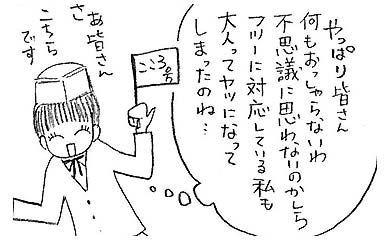 やっぱり皆さん
何もおっしゃらないわ
不思議に思わないのかしら
フツーに対応している私も
大人ってヤツになって
しまったのね…
こころ号
あ皆さん
さ
こちら
です